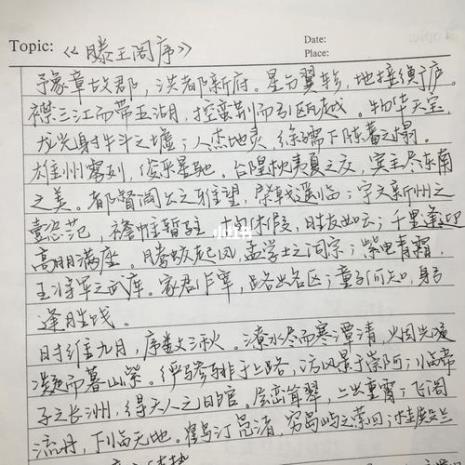 Topic: 《滕王阁序》
Date:
Place:
豫章故郡，洪都新府。星分翼轸，地接衡庐。
襟三江而带五湖，控蛮荆而引瓯越。物华天宝，
龙光射牛斗之墟；人杰地灵，徐孺下陈蕃之榻。
雄州雾列，俊采星驰。台隍枕夷夏之交，宾主尽东南
之美。都督阎公之雅望，棨戟遥临；宇文新州之
懿范，襜帷暂驻。十旬休假，胜友如云；千里逢迎
高朋满座。腾蛟起凤，孟学士之词宗；紫电青霜，
王将军之武库。家君作宰，路出名区；童子何知，躬
逢胜饯。
时维九月，序属三秋。潦水尽而寒潭清，烟光凝
凝而暮山紫。俨骖騑于上路，访风景于崇阿；临帝
子之长洲，得天人之旧馆。层峦耸翠，上出重霄；飞阁
流丹，下临无地。鹤汀凫渚，穷岛屿之萦回；桂殿兰